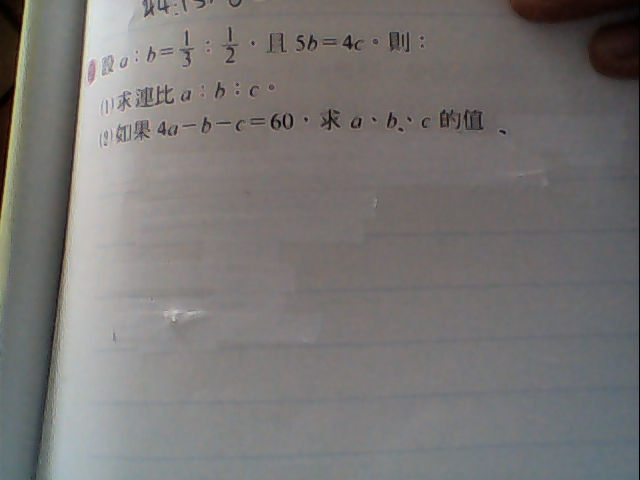 設 a：b＝1/3：1/2，且 5b＝4c。則：
(1)求連比 a：b：c。
(2)如果 4a－b－c＝60，求 a、b、c 的值